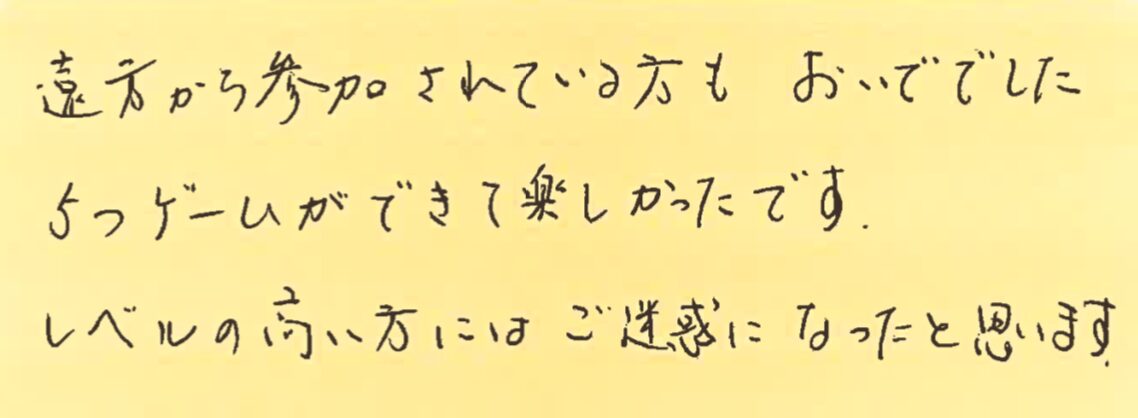 遠方から参加されている方も おいででした
5つゲームができて楽しかったです.
レベルの高い方には ご迷惑に なったと思います.